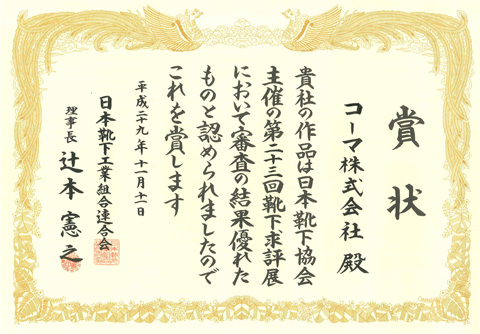 賞状
コーマ株式会社 殿
貴社の作品は日本靴下協会
主催の第二十三回靴下求評展
において審査の結果優れた
ものと認められましたので
これを賞します
平成二十九年十一月十一日
日本靴下工業組合連合会
理事長 辻本憲之